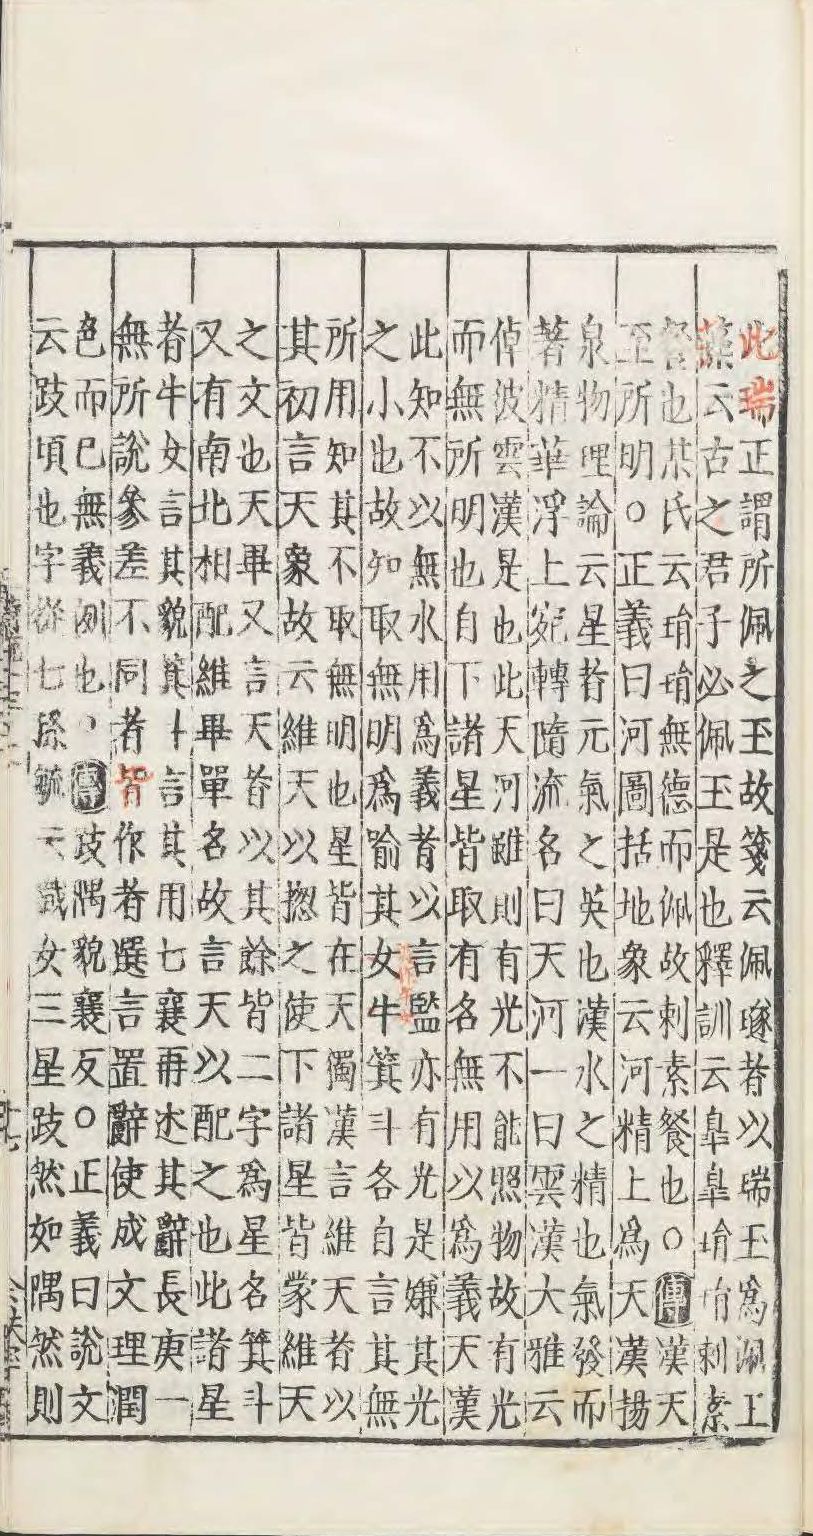 此瑞正謂所佩之玉故箋云佩璲者以瑞玉為佩玉
藻云古之君子必佩玉是也釋訓云臯臯琄琄刺素
餐也某氏云琄琄無德而佩故刺素餐也○傳漢天
至所明○正義曰河圖括地象云河精上為天漢揚
泉物理論云星者元氣之英也漢水之精也氣發而
著精華浮上宛轉隨流名曰天河一曰雲漢大雅云
倬彼雲漢是也此天河雖則有光不能照物故有光
而無所明也自下諸星皆取有名無用以為義天漢
此知不以無水用為義者以言監亦有光是嫌其光
之小也故知取無明為喻其女牛箕斗各自言其無
所用知其不取無明也星皆在天獨漢言維天者以
其初言天象故云維天以揔之使下諸星皆蒙維天
之文也天畢又言天者以其餘皆二字為星名箕斗
又有南北相配維畢單名故言天以配之也此諸星
者牛女言其貌箕斗言其用七襄再述其辭長庚一
無所說參差不同者皆作者選言置辭使成文理潤
色而已無義例也○傳跂隅貌襄反○正義曰說文
云跂頃也字從匕孫毓云織女三星跂然如隅然則